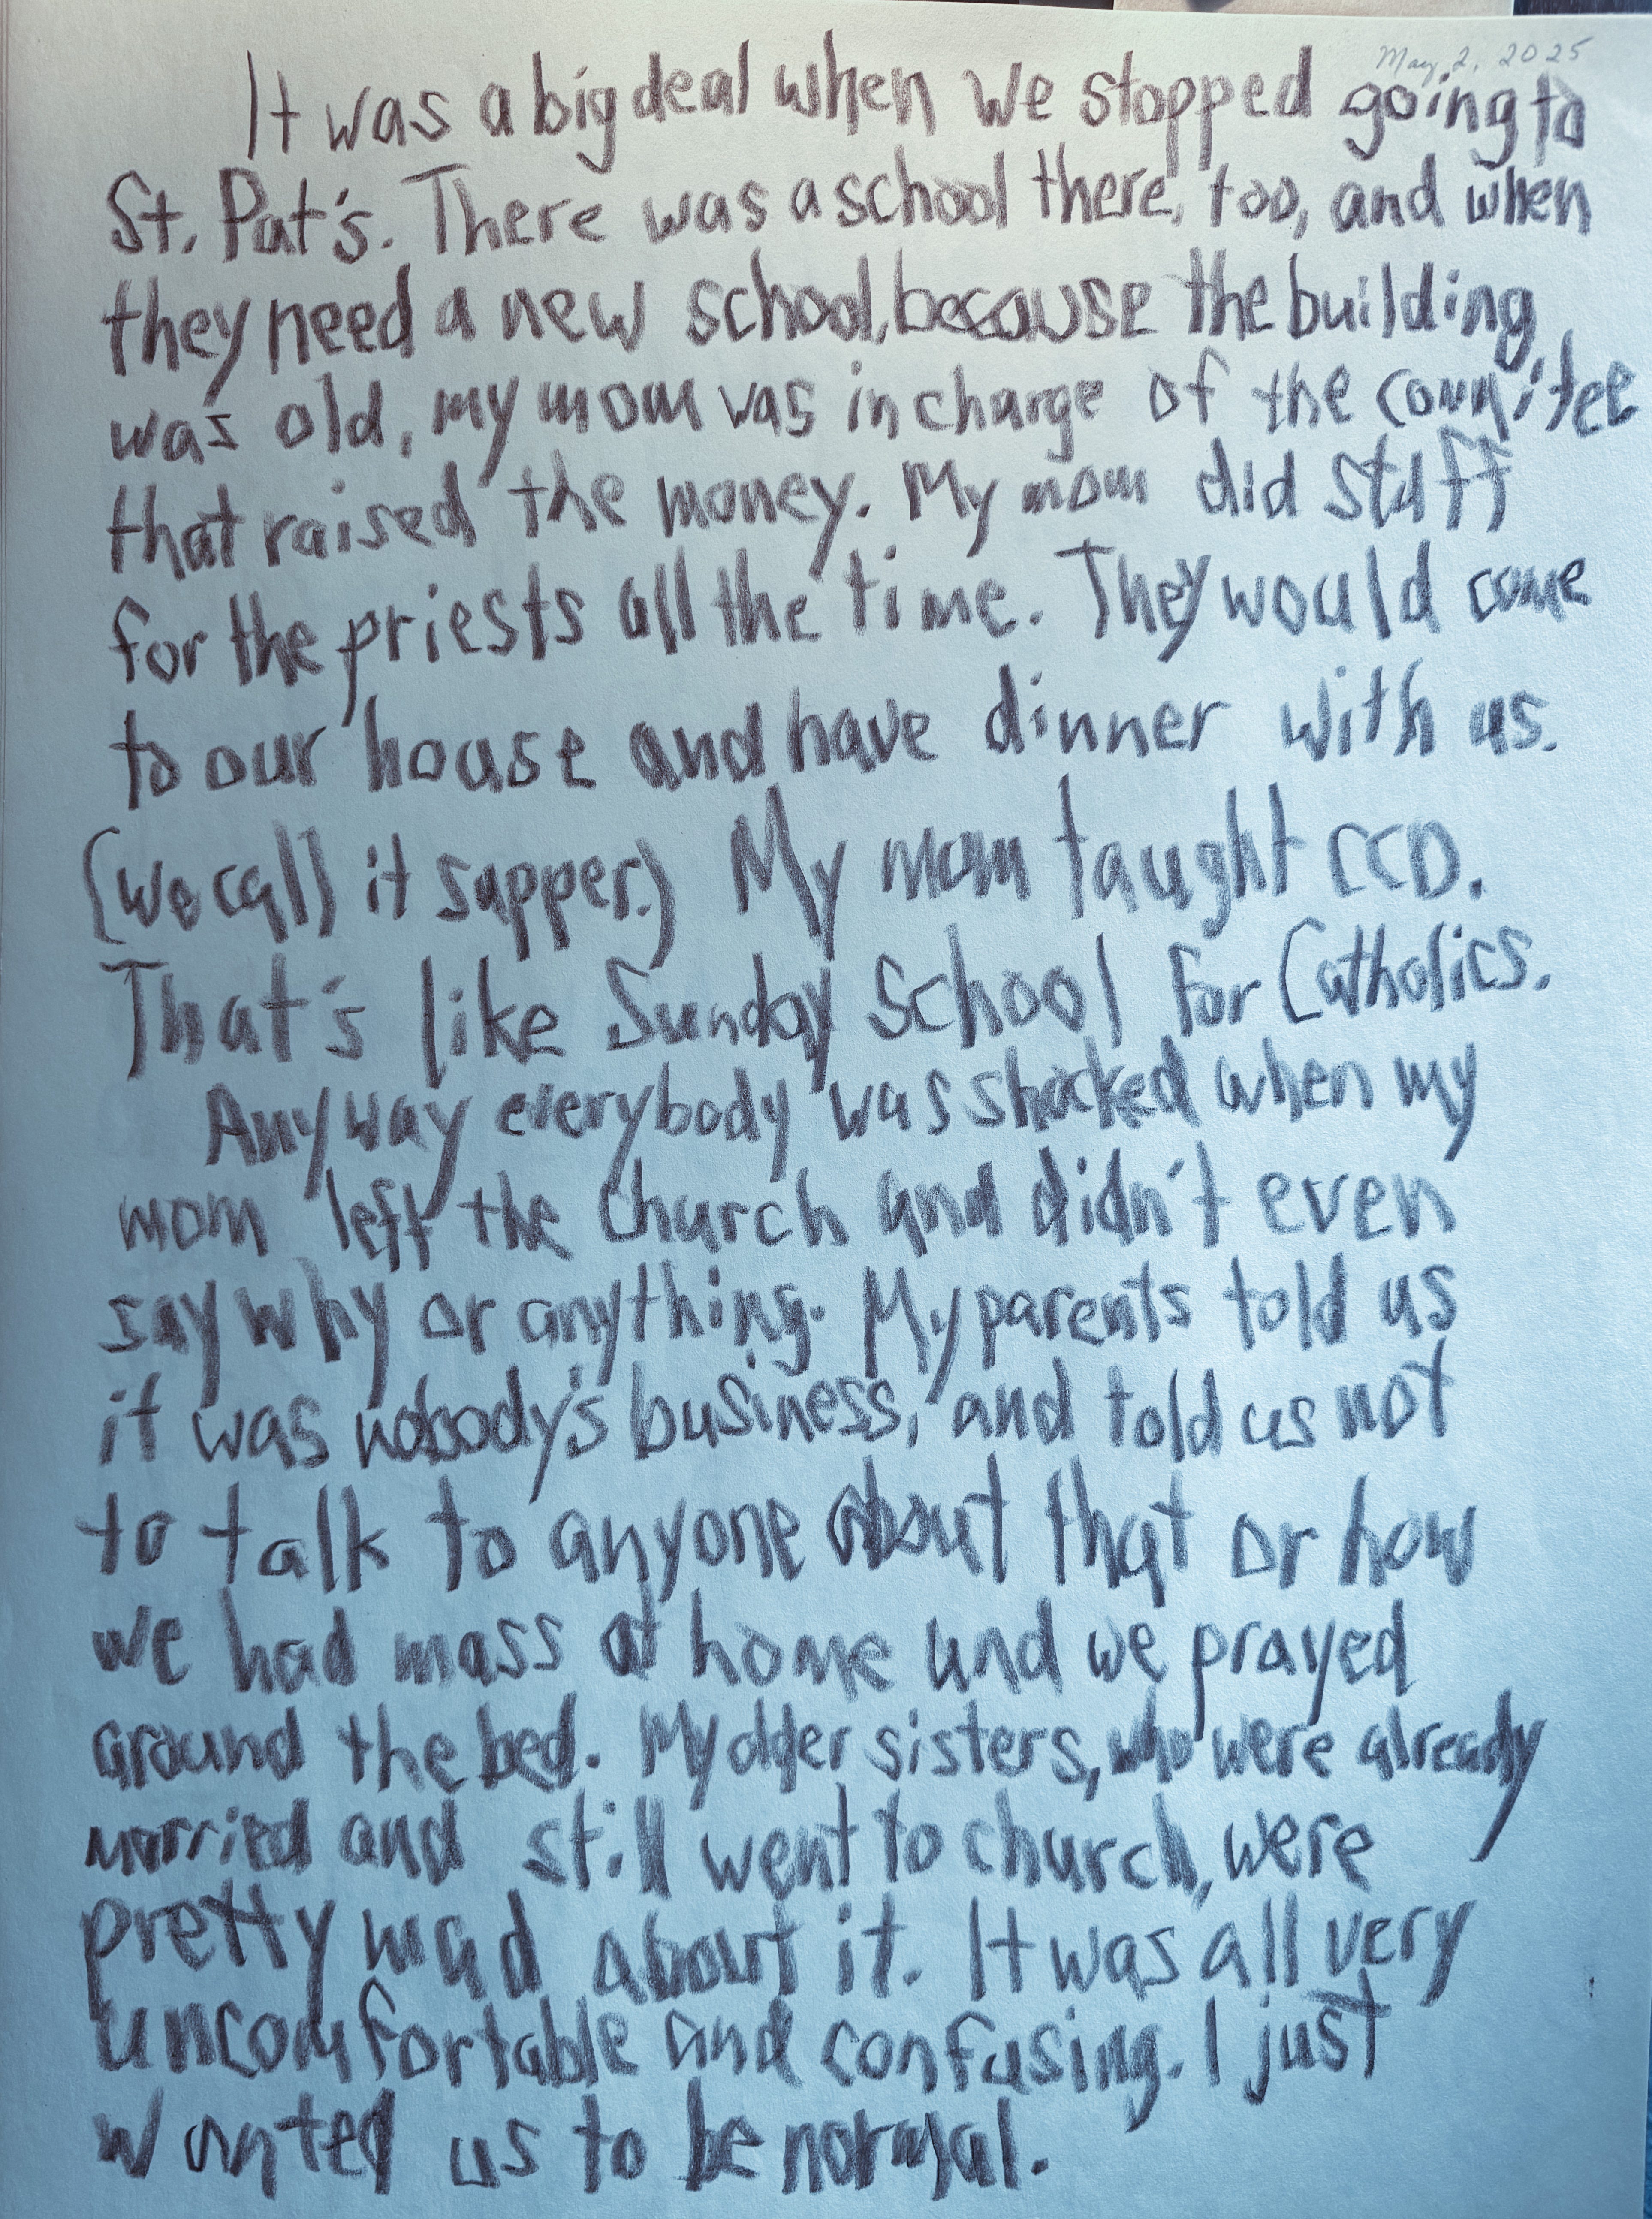 May 2, 2025
It was a big deal when we stopped going to
St. Pat's. There was a school there, too, and when
they need a new school, because the building
was old, my mom was in charge of the committee
that raised the money. My mom did stuff
for the priests all the time. They would come
to our house and have dinner with us.
(We call it supper.) My mom taught CCD.
That's like Sunday School for Catholics.
Anyway everybody was shocked when my
mom left the church and didn't even
say why or anything. My parents told us
it was nobody's business, and told us not
to talk to anyone about that or how
we had mass at home and we prayed
around the bed. My older sisters, who were already
married and still went to church, were
pretty mad about it. It was all very
uncomfortable and confusing. I just
wanted us to be normal.